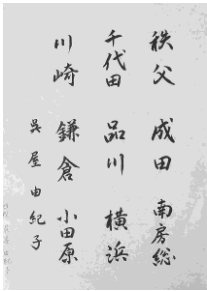 秩父　成田　南房総
千代田　品川　横浜
川崎　鎌倉　小田原
呉屋由紀子